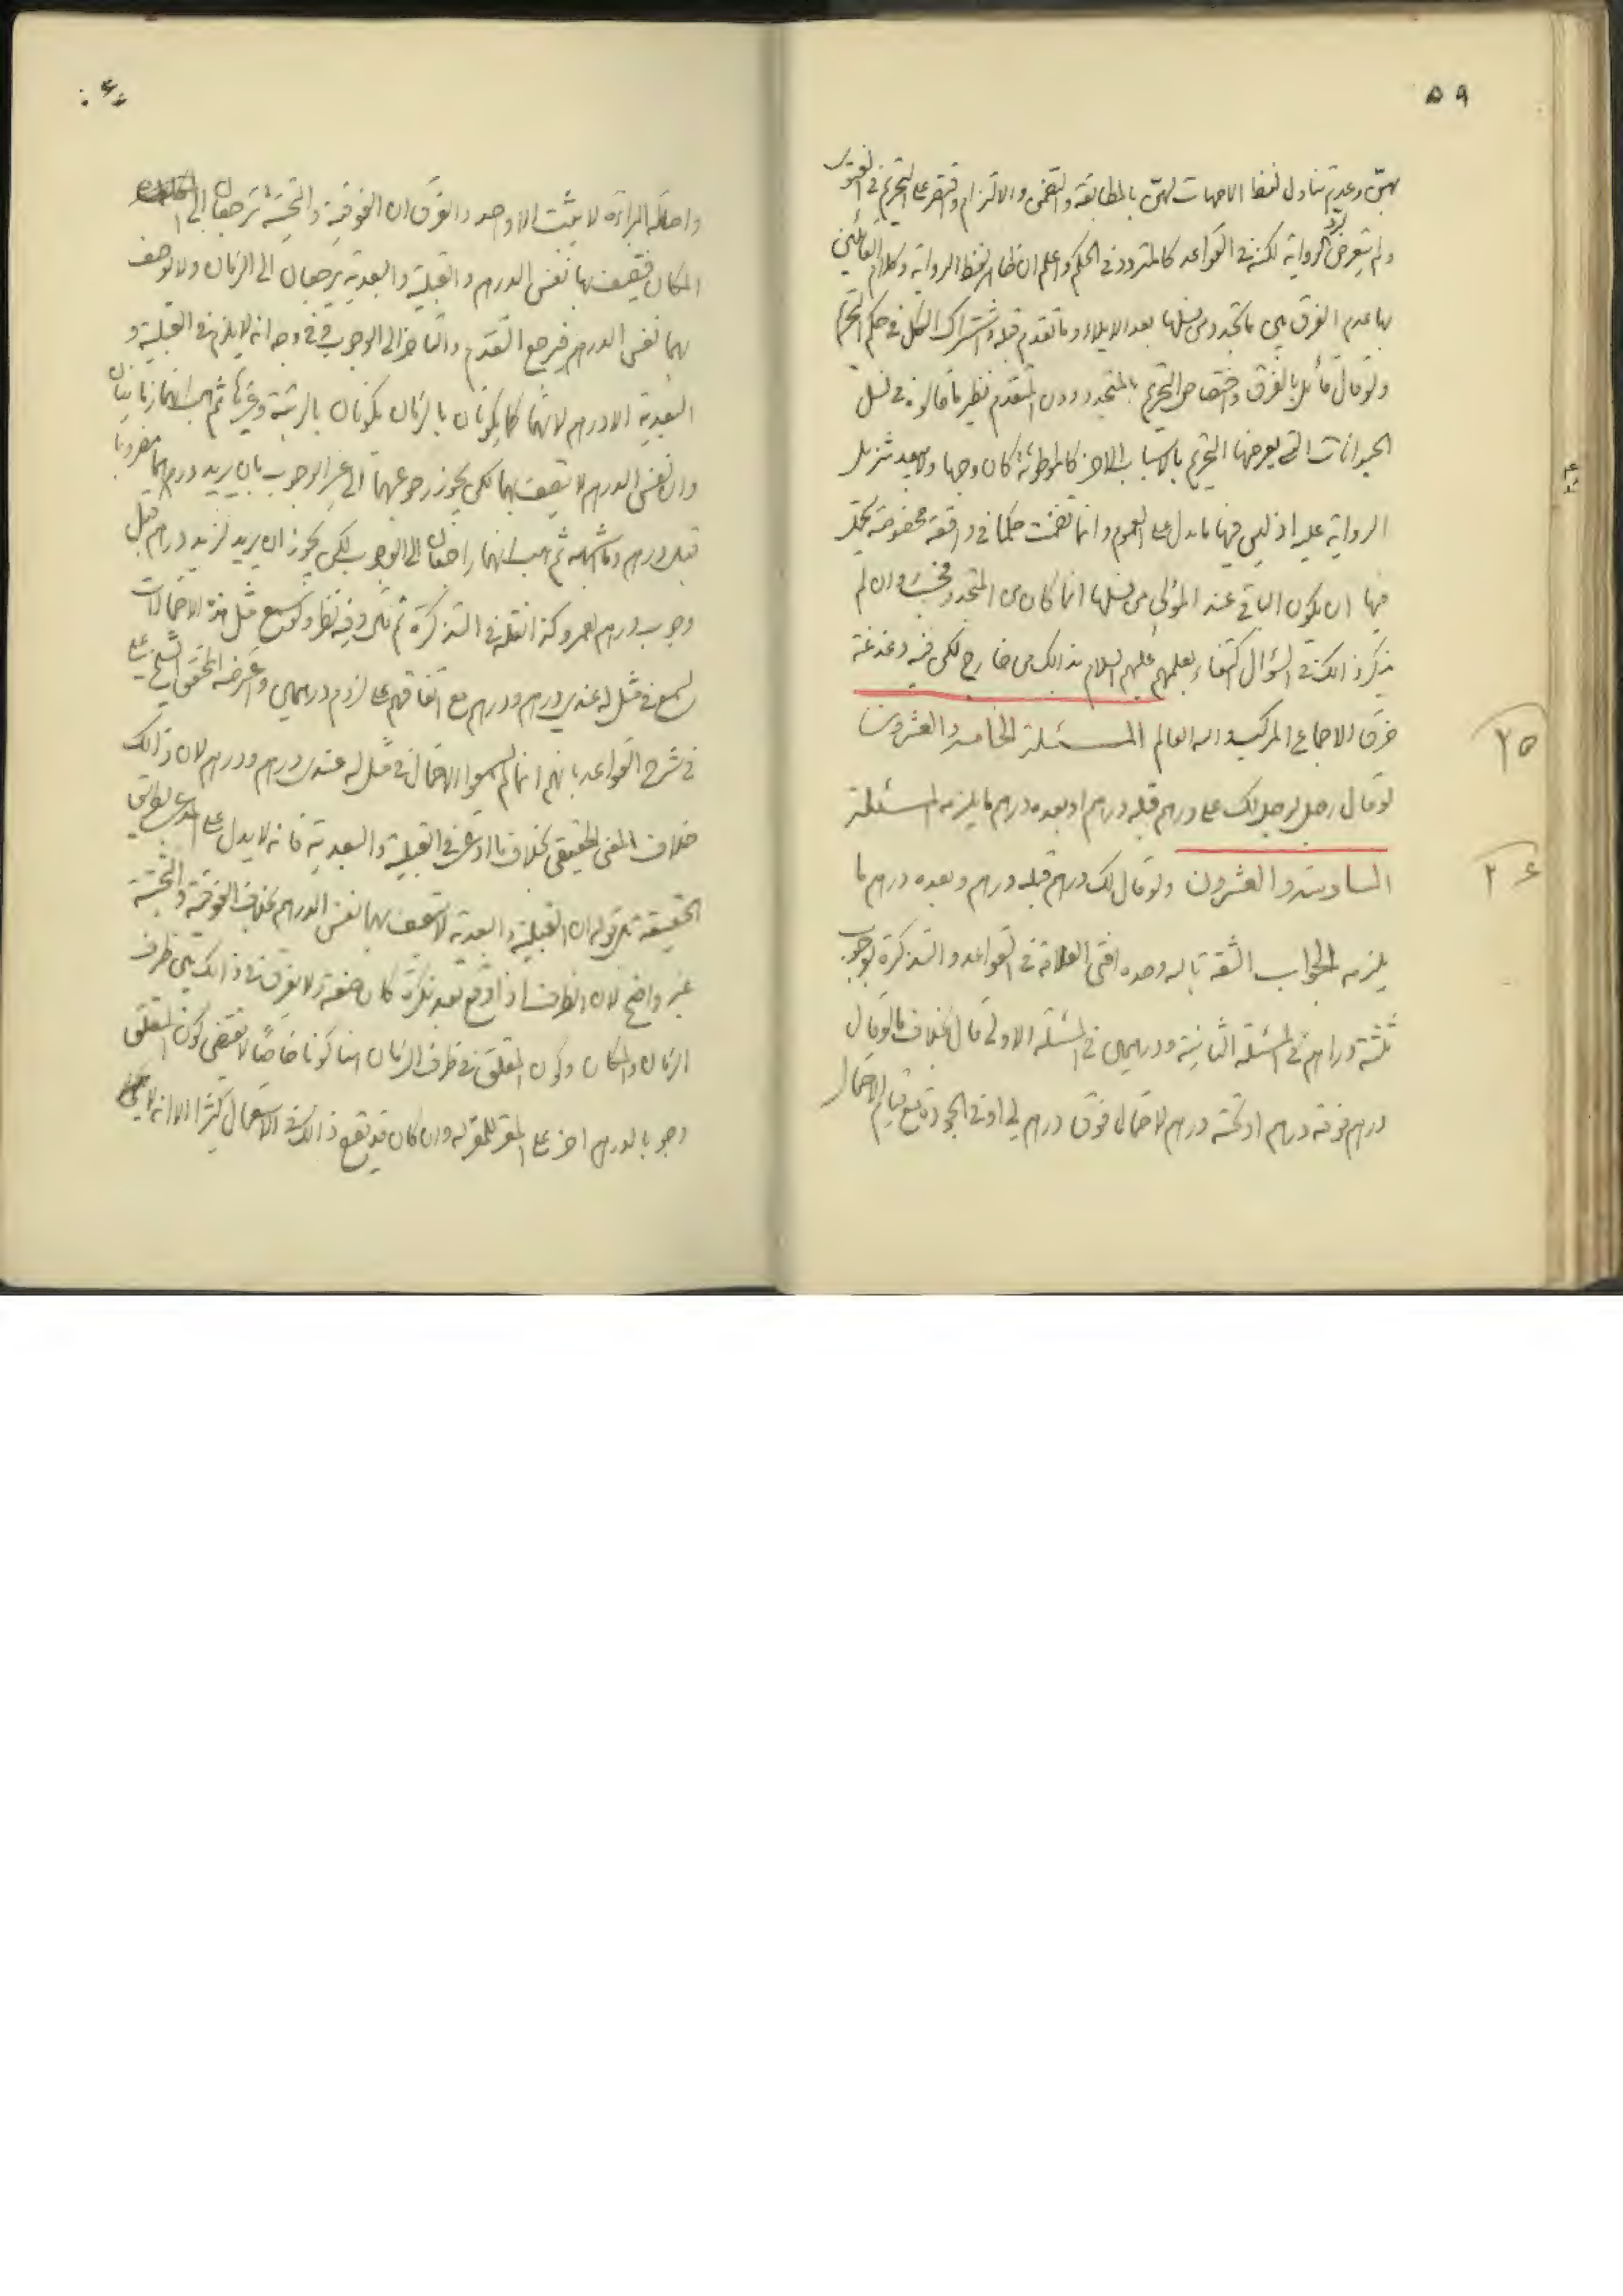 ٥٩
بهنّ وعدم تناول لفظ الامهات لهنّ بالمطابقة والتضمن والالتزام واقتصر على التحريم في الفتوى
ولم يتعرض لردّ الرواية لكنه في القواعد كالمتردد في الحكم واعلم ان ظاهر لفظ الرواية وكلام القائلين
بها عدم الفرق بين ما تجدد من نسلها بعد الايلاء وما تقدم قبله واشتراك الكل في حكم التحريم
ولو قال قائل بالفرق واختصاص التحريم بالمتجدد دون المتقدم نظير ما قالوه في نسل
الحيوانات التي يعرضها التحريم بالاسباب الاخر كالموطوئة كان وجها ولا يبعد تنزيل
الرواية عليه اذ ليس فيها ما يدل على العموم وانما تضمنت حكما في واقعة مخصوصة يحتمل
فيها ان يكون الباقي عند المولى من نسلها انما كان من المتجدد وان لم
يذكر ذالك في السؤال اكتفاء بعلمهم عليهم السلام بذالك من خارج لكن فيه دغدغة
خرق الاجماع المركب والله العالم المسئلة الخامسة والعشرون
٢٥
لو قال رجل لرجل لك على درهم قبله درهم او بعده درهم ما يلزمه المسئلة
السادسة والعشرون ولو قال لك درهم قبله درهم وبعده درهم ما
٢۶
يلزمه الجواب الثقة بالله وحده افتى العلامة في القواعد والتذكرة بوجوب
ثلثة دراهم في المسئلة الثانية ودرهمين في المسئلة الاولى قال بخلاف ما لو قال
درهم فوقه درهم او تحته درهم لاحتمال فوق درهم لي او في الجودة ومع قيام الاحتمال
۶۰
واصالة البرائة لا يثبت الا واحد والفرق ان الفوقية والتحتية يرجعان الى
المكان فيتصف بها نفس الدرهم والقبلية والبعدية يرجعان الى الزمان ولا يوصف
بهما نفس الدرهم فيرجع التقدم والتاخر الى الوجوب وفي وجه انه لا يلزم في القبلية و
البعدية الا درهم لانهما كما يكونان بالزمان يكونان بالرتبة وغيرها ثم هب انهما زمانيان
وان نفس الدرهم لا يتصف بهما لكن يجوز رجوعهما الى غير الوجوب بان يريد درهما مضروبا
قبل درهم وما اشبهه ثم هب انهما راجعان الى الوجوب لكن يجوز ان يريد لزيد درهم قبل
وجوب درهم لعمرو كذا نقله في التذكرة ثم قال وفيه نظر ولو سمع مثل هذه الاحتمالات
لسمع في مثل له عندي درهم ودرهم مع اتفاقهم على لزوم درهمين واعترضه المحقق الشيخ علي
في شرح القواعد بانهم انما لم يسمعوا الاحتمال في مثل له عندي درهم ودرهم لان ذالك
خلاف المعنى الحقيقي بخلاف ما ادعى في القبلية والبعدية فانه لا يدل على المدعى بطريق
الحقيقة ثم قوله ان القبلية والبعدية لا يتصف بهما نفس الدرهم بخلاف الفوقية والتحتية
غير واضح لان الظرف اذا وقع بعد نكرة كان صفة ولا يفرق في ذالك بين ظرف
الزمان والمكان وكون المتعلق في ظرف الزمان هنا كونا خاصًا لا يقتضى كون المتعلق
وجوبا لدرهم اخر على المقر للمقر له وان كان قد يقع ذالك في الاستعمال كثيرا الا انه لا